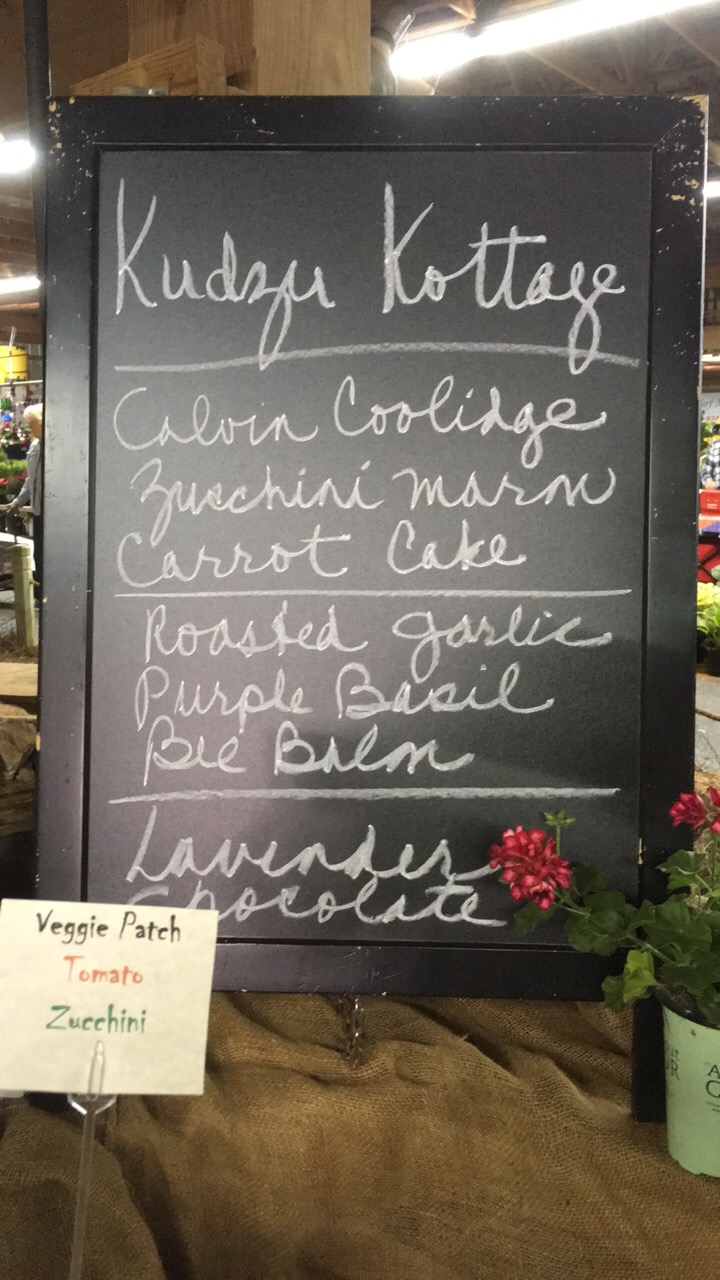 Kudzu Kottage
Calvin Coolidge
Zucchini marm
Carrot Cake
Roasted garlic
Purple Basil
Bee Balm
Lavender
Chocolate
Veggie Patch
Tomato
Zucchini